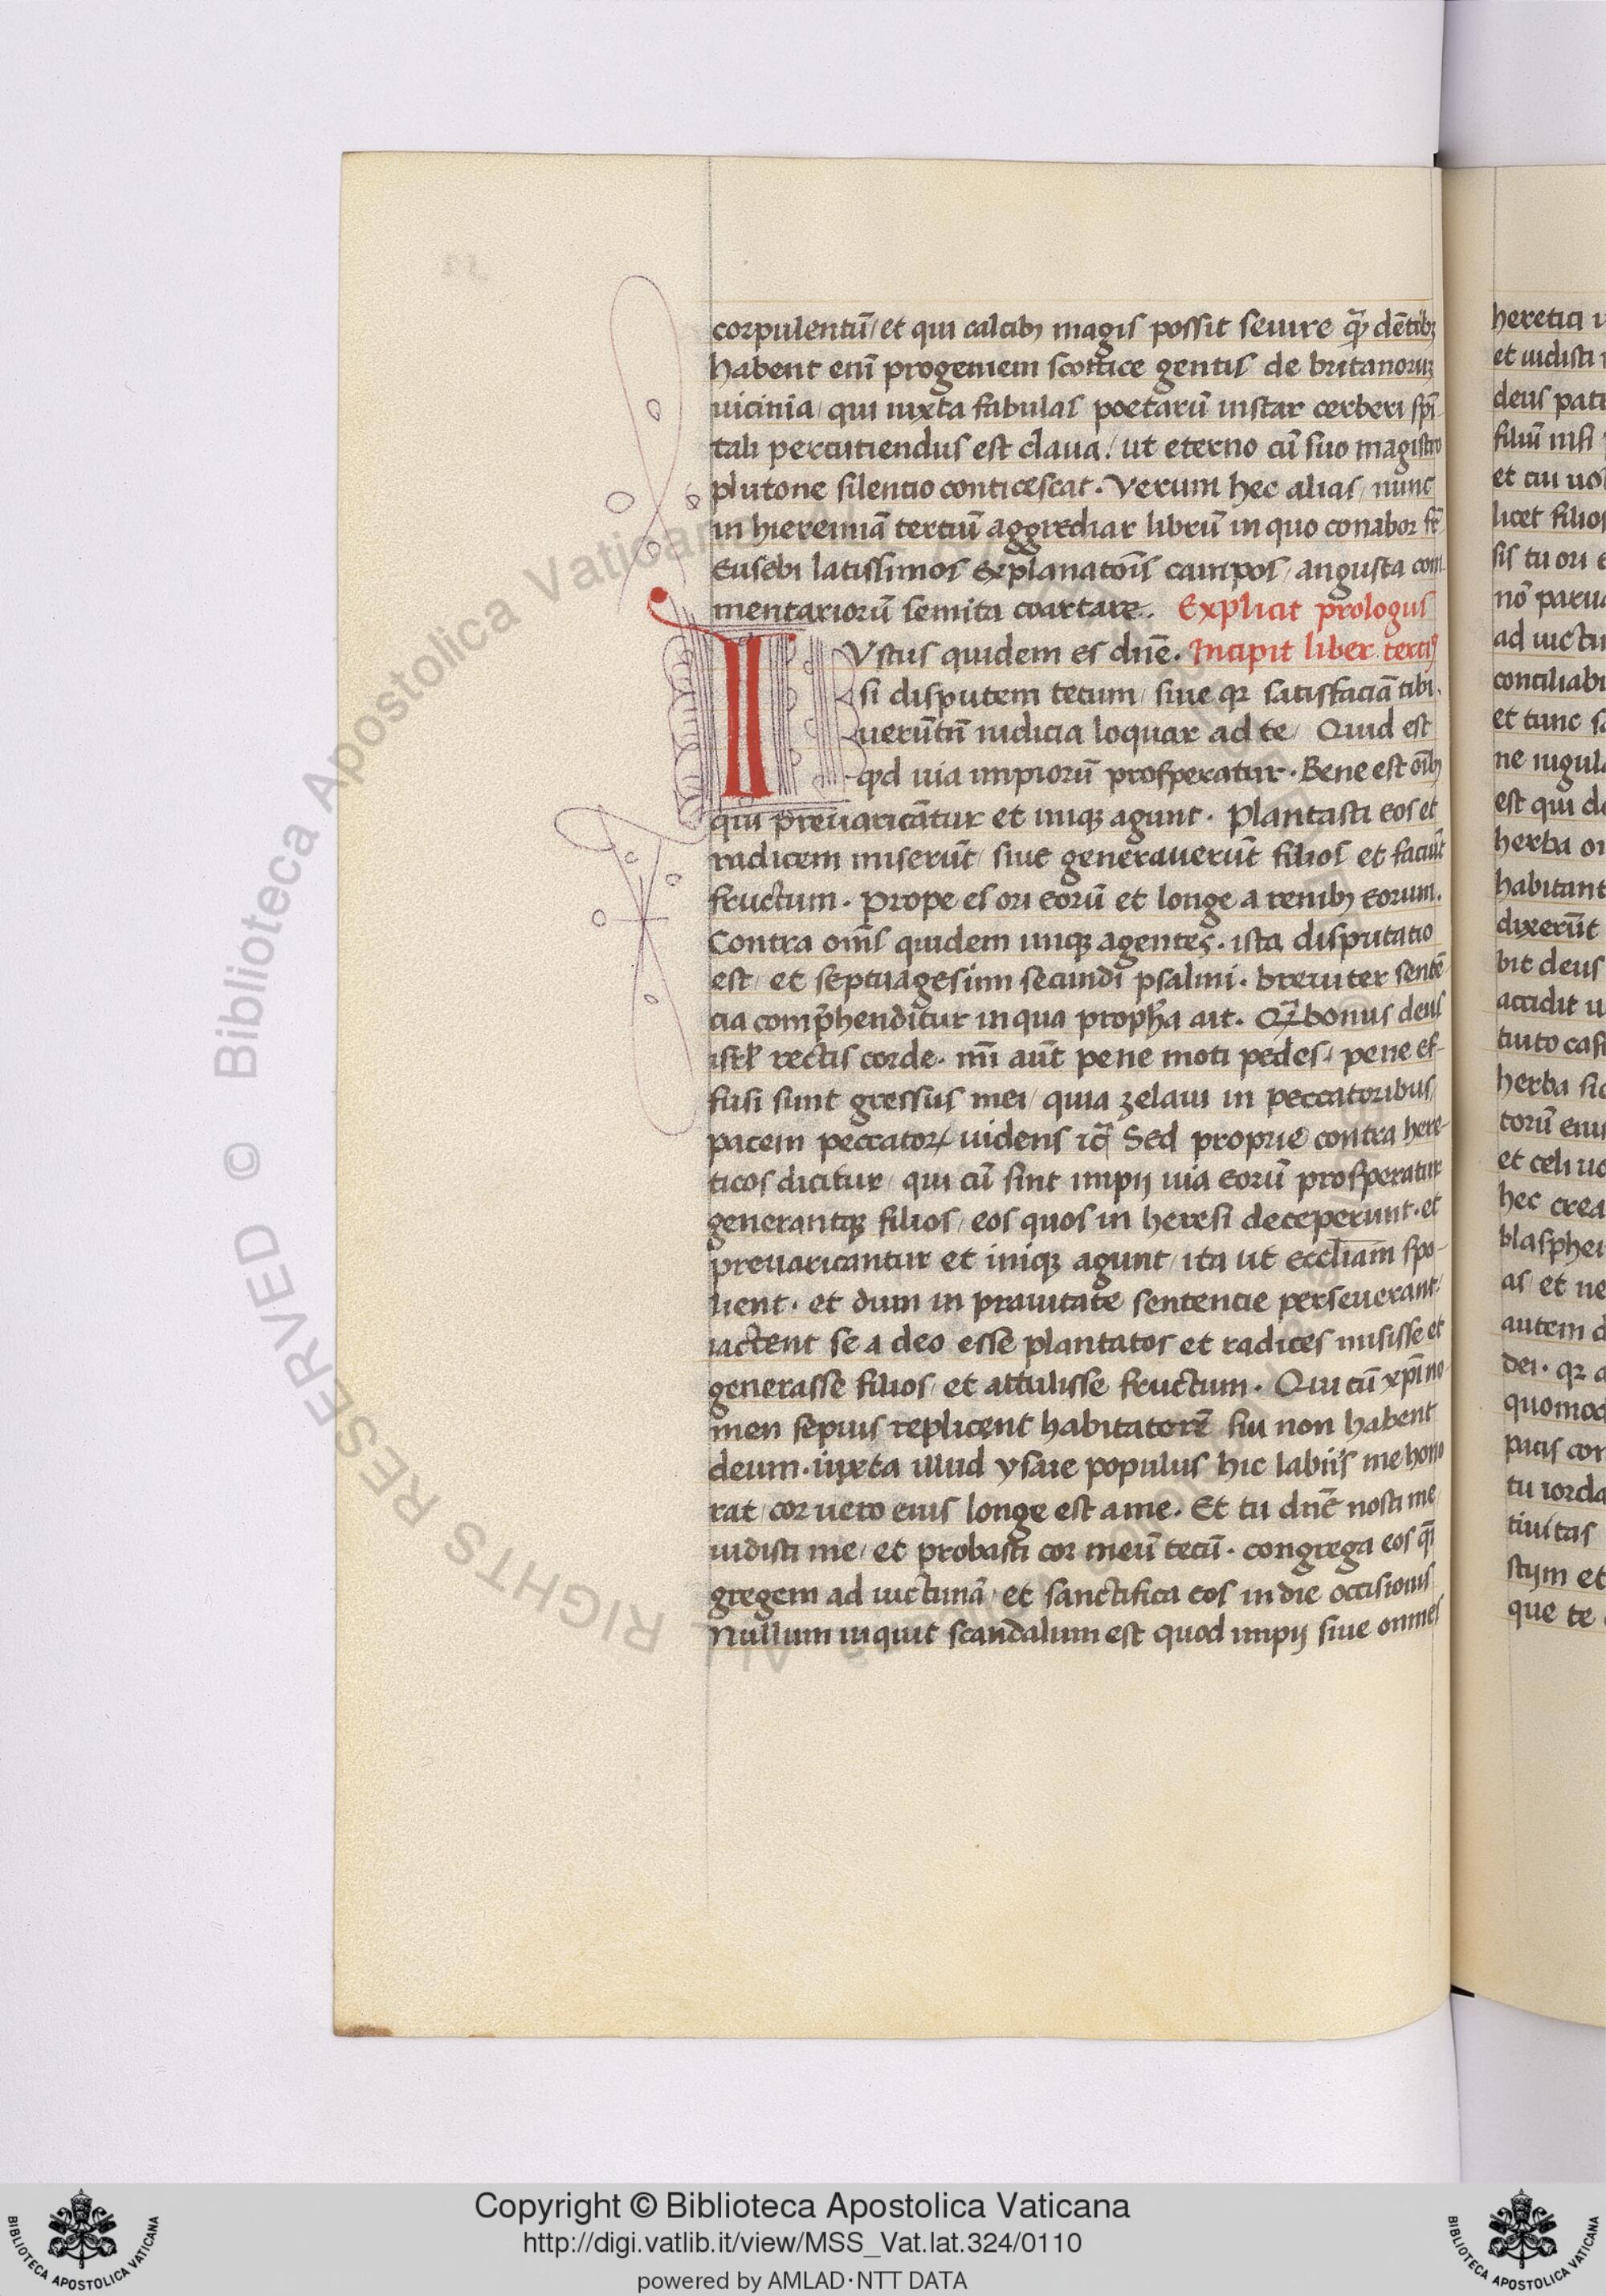 corpulentū / et qui calcib; magis possit seuire q̄ꝫ dētib;
habent enī progeniem scottice gentis de britanoruꝫ
uicinia / qui iuxta fabulas poetarū instar cerberi spī
tali percutiendus est claua / ut eterno cū suo magistro
plutone silentio conticescat. Verum hec alias / nunc
in hieremiā tertiū aggrediar librū in quo conabor fr̄
Eusebi latissimos explanatōis campos / angusta com
mentariorū semita coartare. Explicit prologus
IVstus quidem es dn̄e. Incipit liber terciꝰ
si disputem tecum / siue qꝛ satisfaciā tibi.
uerūtn̄ iudicia loquar ad te / Quid est
qd uia impiorū prosperatur. Bene est oīb;
qui preuaricātur et iniqꝫ agunt. Plantasti eos et
radicem miserūt / siue generauerūt filios et faciūt
fructum. Prope es ori eorū et longe a renib; eorum.
Contra om̄s quidem iniqꝫ agentes. ista disputatio
est / et septuagesimi secundi psalmi. breuiter sentē
cia comp̄henditur in qua prophā ait. Qꝫ bonus deus
isrł rectis corde. mī aūt pene moti pedes / pene ef-
fusi sunt gressus mei / quia zelaui in peccatoribus /
pacem peccatoꝝ uidens ⁊c̄ Sed proprie contra here-
ticos dicitur / qui cū sint impij uia eorū prosperatur
generantqꝫ filios / eos quos in heresi deceperunt. et
preuaricantur et iniqꝫ agunt / ita ut eccliam spo-
lient. et dum in prauitate sentencie perseuerant /
iactent se a deo esse plantatos et radices misisse et
generasse filios / et attulisse fructum. Qui cū xp̄i no
men sepius replicent habitatorē sui non habent
deum. iuxta illud ysaie populus hic labiis me hono
rat / cor uero eius longe est a me. Et tu dn̄e nosti me
uidisti me / et probasti cor meū tecū. congrega eos q̄si
gregem ad uictimā / et sanctifica eos in die occisionis
Nullum inquit scandalum est quod impij siue omnes
heretici
et uidisti
deus
filiū nisi
et cui
licet filios
sis tu ori
nō
ad uictu
conciliabu
et tunc
ne iugul
est qui
herba
habitant
dixerūt
bit deus
accidit
tiuto
herba
torū eius
et celi
hec crea
blasphe
as / et ne
autem
dei. qꝛ
quomod
pacis con
tu iorda
tiuitas
et
que te
Biblioteca Apostolica Vaticana ALL RIGHTS RESERVED ©
Copyright © Biblioteca Apostolica Vaticana
http://digi.vatlib.it/view/MSS_Vat.lat.324/0110
powered by AMLAD·NTT DATA
BIBLIOTECA APOSTOLICA VATICANA
BIBLIOTECA APOSTOLICA VATICANA